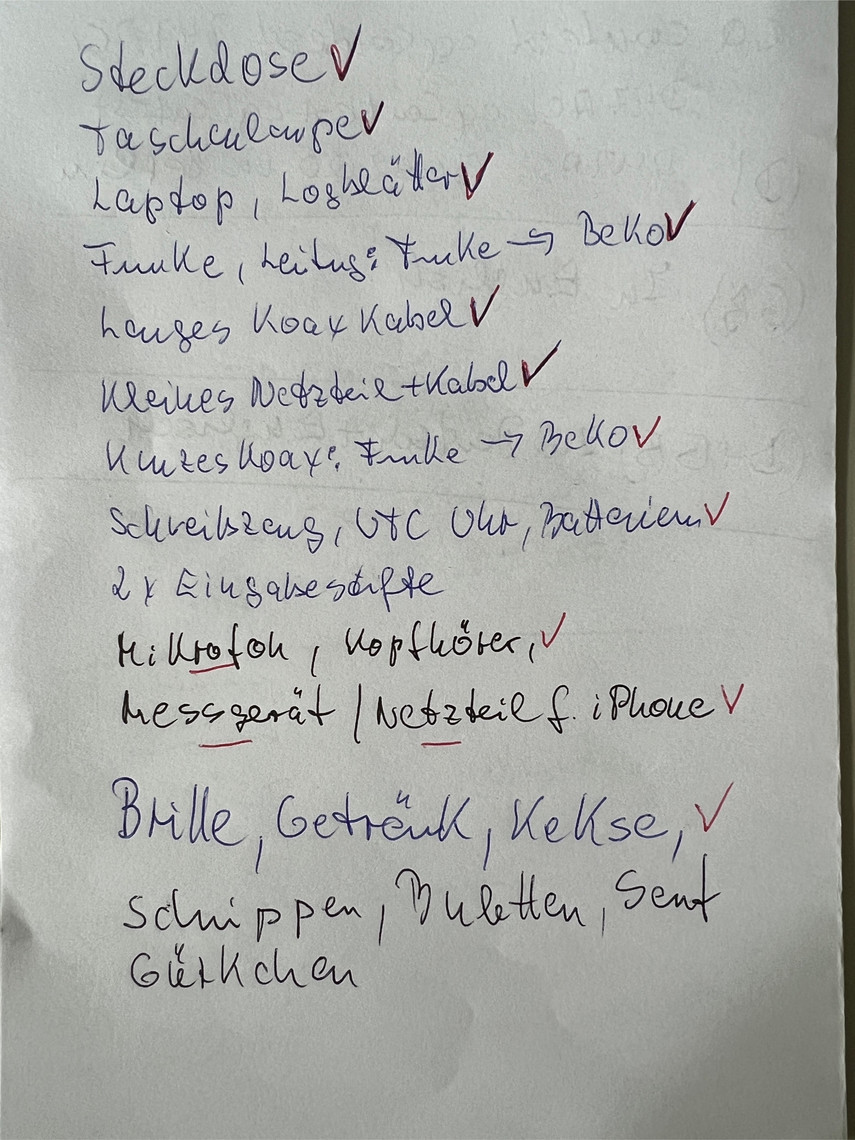 Steckdose ✓
Taschenlampe ✓
Laptop, Logblätter ✓
Funke, Leitug: Funke → BeKo ✓
Langes Koax Kabel ✓
Kleines Netzteil + Kabel ✓
Kurzes Koax: Funke → BeKo ✓
Schreibzeug, UTC Uhr, Batterien ✓
2x Eingabestifte
Mikrofon, Kopfhörer, ✓
Messgerät / Netzteil f. iPhone ✓
Brille, Getränk, Kekse, ✓
Schnippen, Buletten, Senf
Gürkchen